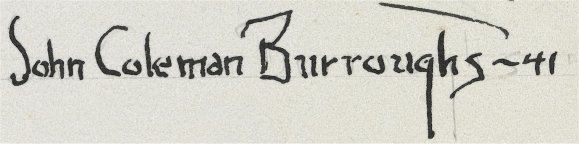 John Coleman Burroughs ~ 41